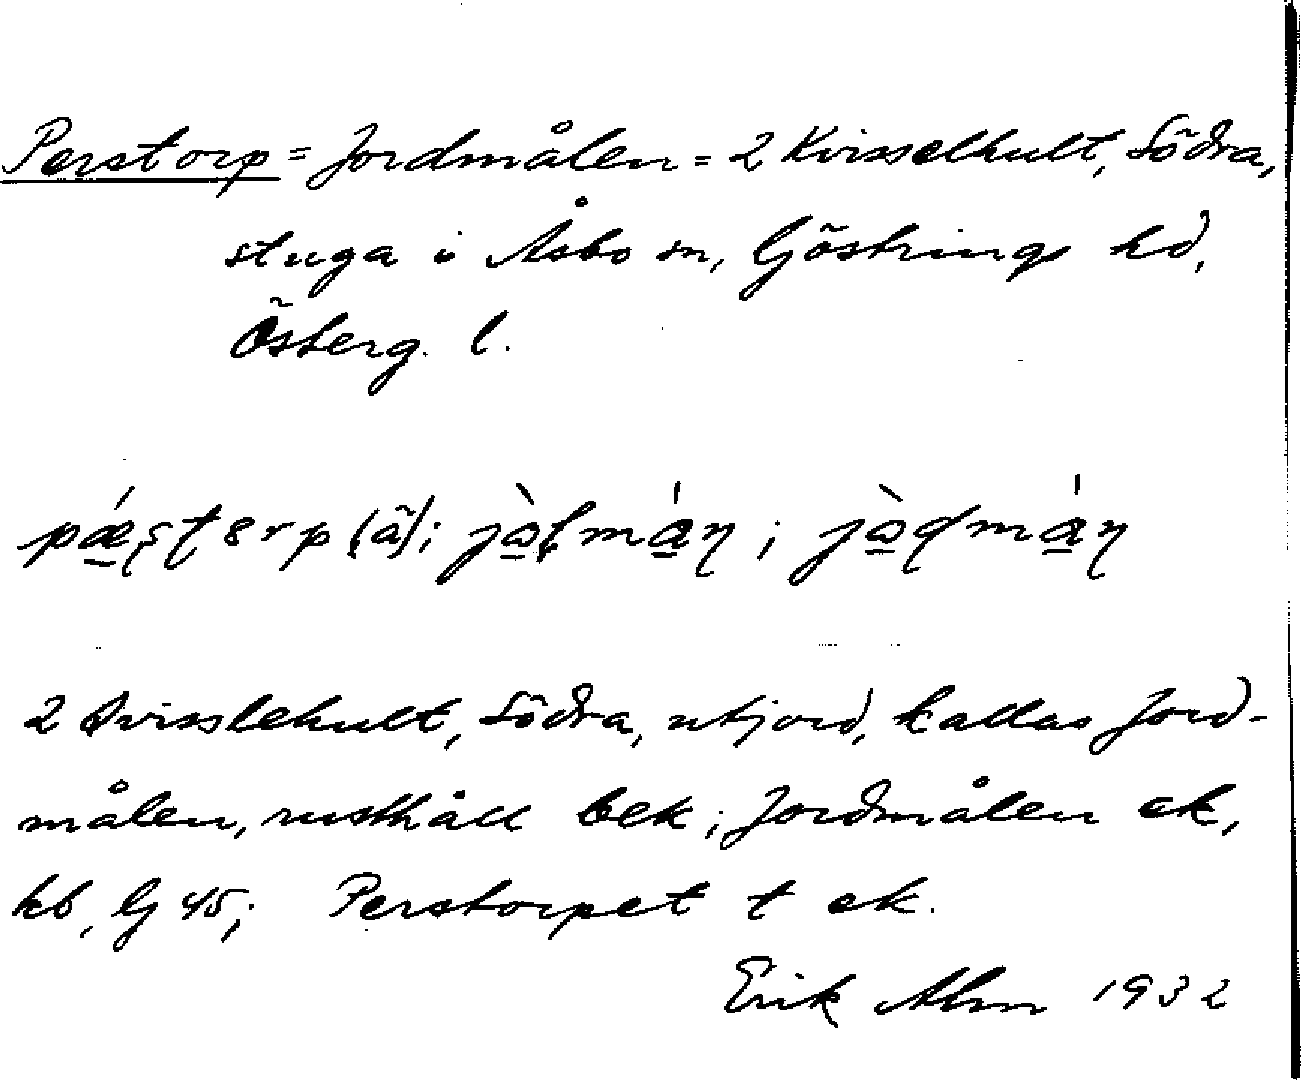 Perstorp = Jordmålen = 2 Kvisselhult, Södra,
stuga i Åsbo sn, Göstrings hd,
Österg. l.
pǽsterp (ã); jòḷmáη; jòqmáη
2 Qvisslehult, Södra, utjord, kallas Jord-
målen, rusthåll bek; Jordmålen ek,
kb, G 45; Perstorpet t ek.
Erik Alm 1932